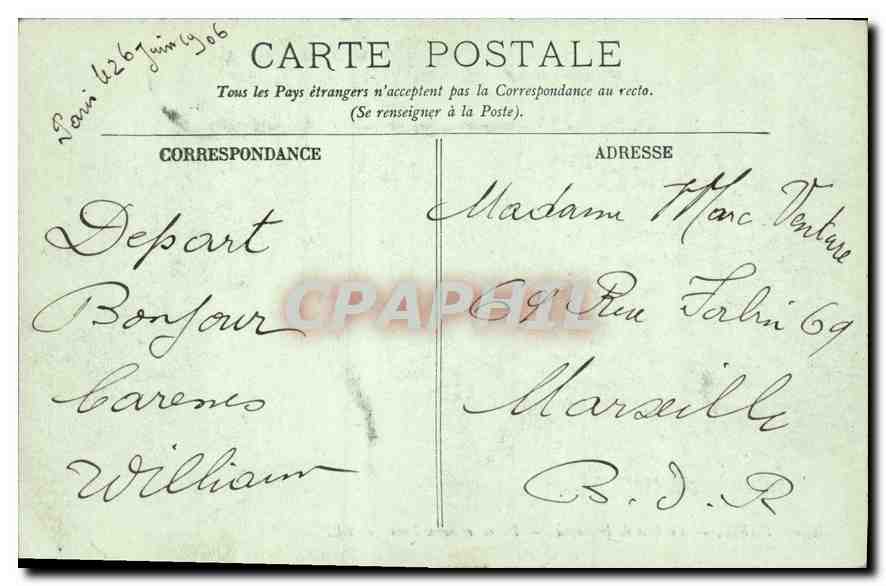 Paris le 26 Juin 1906
CARTE POSTALE
Tous les Pays étrangers n'acceptent pas la Correspondance au recto.
(Se renseigner à la Poste).
CORRESPONDANCE
Depart
Bonjour
William
ADRESSE
Madame Marc Venture
69 Rue Forbin 69
Marseille
B. d. R
CPAPHIL